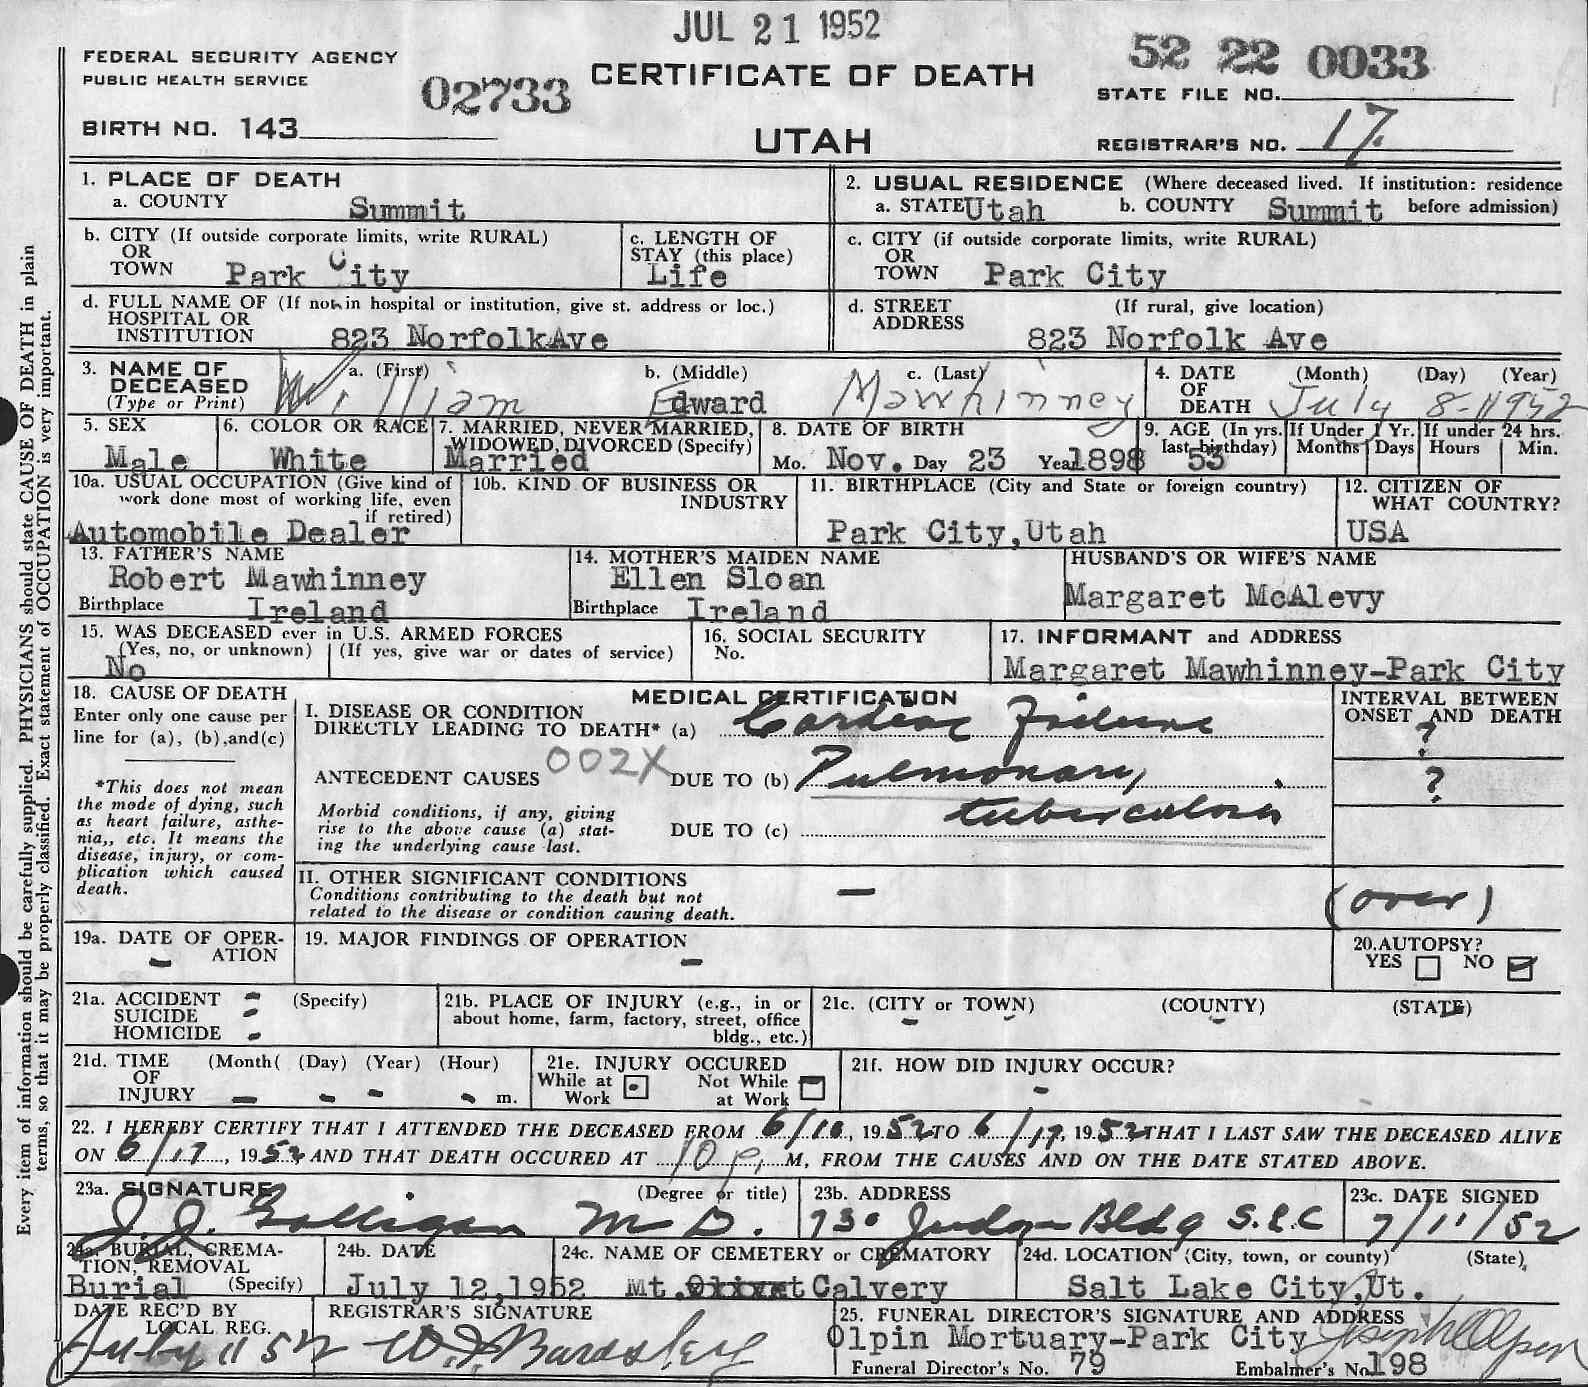 JUL 21 1952
FEDERAL SECURITY AGENCY
PUBLIC HEALTH SERVICE
02733
CERTIFICATE OF DEATH
52 22 0033
STATE FILE NO.
BIRTH NO. 143
UTAH
REGISTRAR'S NO. 17
Every item of information should be carefully supplied. PHYSICIANS should state CAUSE OF DEATH in plain
terms, so that it may be properly classified. Exact statement of OCCUPATION is very important.
1. PLACE OF DEATH
a. COUNTY Summit
2. USUAL RESIDENCE (Where deceased lived. If institution: residence
a. STATE Utah b. COUNTY Summit before admission)
b. CITY (If outside corporate limits, write RURAL)
OR
TOWN Park City
c. LENGTH OF
STAY (this place)
Life
c. CITY (if outside corporate limits, write RURAL)
OR
TOWN Park City
d. FULL NAME OF (If not in hospital or institution, give st. address or loc.)
HOSPITAL OR
INSTITUTION 823 NorfolkAve
d. STREET (If rural, give location)
ADDRESS
823 Norfolk Ave
3. NAME OF a. (First) b. (Middle) c. (Last)
DECEASED
(Type or Print) William Edward Mawhinney
4. DATE (Month) (Day) (Year)
OF
DEATH July 8-1952
5. SEX
Male
6. COLOR OR RACE
White
7. MARRIED, NEVER MARRIED,
WIDOWED, DIVORCED (Specify)
Married
8. DATE OF BIRTH
Mo. Nov. Day 23 Year 1898
9. AGE (In yrs.
last birthday)
53
If Under 1 Yr.
Months Days
If under 24 hrs.
Hours Min.
10a. USUAL OCCUPATION (Give kind of
work done most of working life, even
if retired)
Automobile Dealer
10b. KIND OF BUSINESS OR
INDUSTRY
11. BIRTHPLACE (City and State or foreign country)
Park City,Utah
12. CITIZEN OF
WHAT COUNTRY?
USA
13. FATHER'S NAME
Robert Mawhinney
Birthplace Ireland
14. MOTHER'S MAIDEN NAME
Ellen Sloan
Birthplace Ireland
HUSBAND'S OR WIFE'S NAME
Margaret McAlevy
15. WAS DECEASED ever in U.S. ARMED FORCES
(Yes, no, or unknown) (If yes, give war or dates of service)
No
16. SOCIAL SECURITY
No.
17. INFORMANT and ADDRESS
Margaret Mawhinney-Park City
18. CAUSE OF DEATH
Enter only one cause per
line for (a), (b),and(c)
*This does not mean
the mode of dying, such
as heart failure, asthe-
nia,, etc. It means the
disease, injury, or com-
plication which caused
death.
MEDICAL CERTIFICATION
I. DISEASE OR CONDITION
DIRECTLY LEADING TO DEATH* (a) Cardiac Failure
002X
ANTECEDENT CAUSES DUE TO (b) Pulmonary
tuberculosis
Morbid conditions, if any, giving
rise to the above cause (a) stat-
ing the underlying cause last.
DUE TO (c)
INTERVAL BETWEEN
ONSET AND DEATH
?
?
II. OTHER SIGNIFICANT CONDITIONS
Conditions contributing to the death but not
related to the disease or condition causing death.
-
(over)
19a. DATE OF OPER-
ATION
-
19. MAJOR FINDINGS OF OPERATION
-
20.AUTOPSY?
YES NO
21a. ACCIDENT - (Specify)
SUICIDE -
HOMICIDE -
21b. PLACE OF INJURY (e.g., in or
about home, farm, factory, street, office
bldg., etc.)
21c. (CITY or TOWN) (COUNTY) (STATE)
- - -
21d. TIME (Month( (Day) (Year) (Hour)
OF
INJURY - - - - m.
21e. INJURY OCCURED
While at Not While
Work at Work
21f. HOW DID INJURY OCCUR?
-
22. I HEREBY CERTIFY THAT I ATTENDED THE DECEASED FROM 6/10, 1952 TO 6/17, 1952 THAT I LAST SAW THE DECEASED ALIVE
ON 6/17, 1952 AND THAT DEATH OCCURED AT 10 p. M, FROM THE CAUSES AND ON THE DATE STATED ABOVE.
23a. SIGNATURE (Degree or title)
J. J. Galligan M D.
23b. ADDRESS
730 Judge Bldg S.L.C
23c. DATE SIGNED
7/11/52
24a. BURIAL, CREMA-
TION, REMOVAL
Burial (Specify)
24b. DATE
July 12,1952
24c. NAME OF CEMETERY or CREMATORY
Mt. Calvery
24d. LOCATION (City, town, or county) (State)
Salt Lake City,Ut.
DATE REC'D BY
LOCAL REG.
July 11 52
REGISTRAR'S SIGNATURE
Bardsley
25. FUNERAL DIRECTOR'S SIGNATURE AND ADDRESS
Olpin Mortuary-Park City Joseph Olpin
Funeral Director's No. 79 Embalmer's No. 198